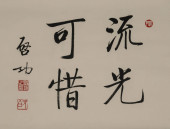 流光
可惜
启功